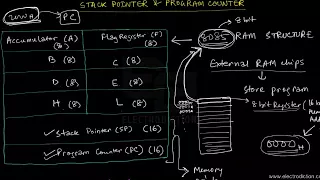 STACK POINTER & PROGRAM COUNTER
PC
8 bit
8085 RAM STRUCTURE
Accumulator (A) (8)
Flag Register (F) (8)
B (8)
C (8)
D (8)
E (8)
H (8)
L (8)
✓ Stack Pointer (SP) (16)
✓ Program Counter (PC) (16)
External RAM chips
Store program
8 bit Register
0000 H
Memory
www.electrodiction.com